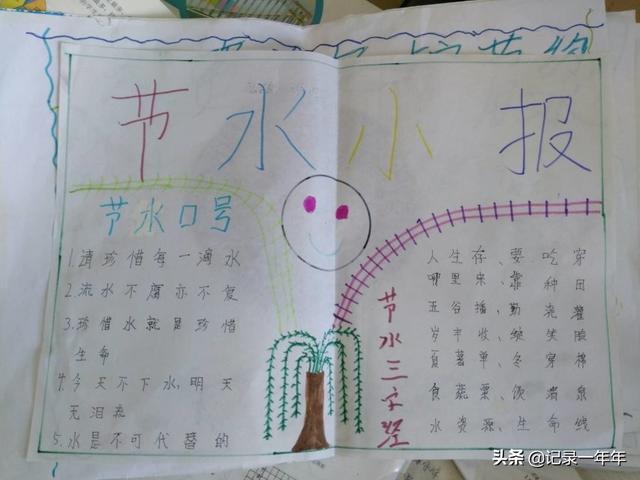 节水小报
节水口号
1.请珍惜每一滴水
2.流水不腐亦不复
3.珍惜水就是珍惜
生命
4.今天不下水,明天
无泪流
5.水是不可代替的
节水三字经
人生存、要吃穿
哪里来、靠种田
五谷播、勤浇灌
岁丰收、绽笑脸
夏着单、冬穿棉
食蔬、饮清泉
水资源、生命线
头条 @记录一年年